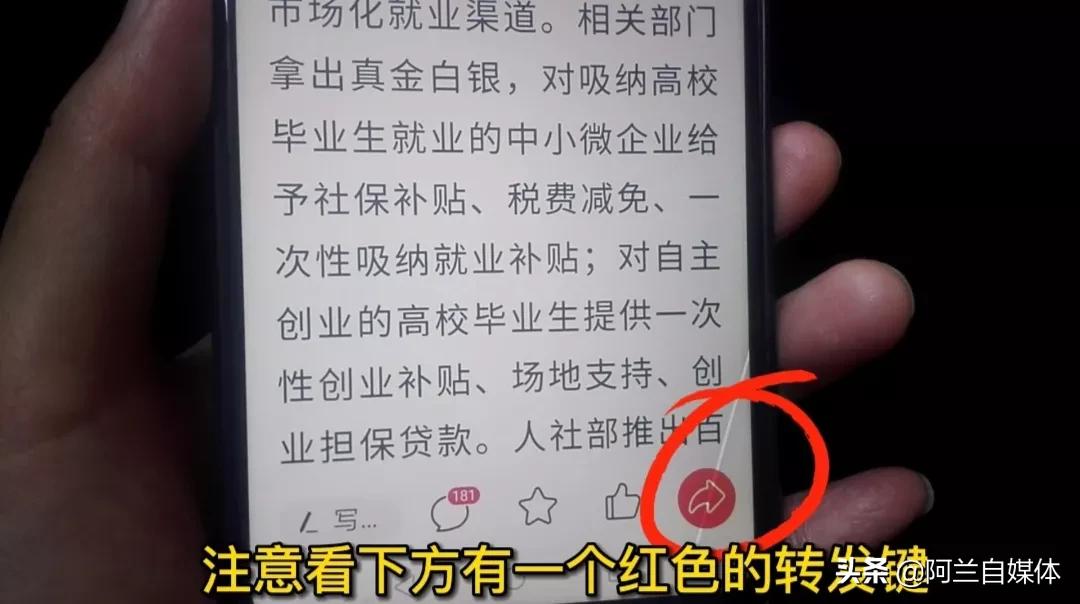 市场化就业渠道。相关部门
拿出真金白银，对吸纳高校
毕业生就业的中小微企业给
予社保补贴、税费减免、一
次性吸纳就业补贴；对自主
创业的高校毕业生提供一次
性创业补贴、场地支持、创
业担保贷款。人社部推出百
写...
181
注意看下方有一个红色的转发键
头条 @阿兰自媒体